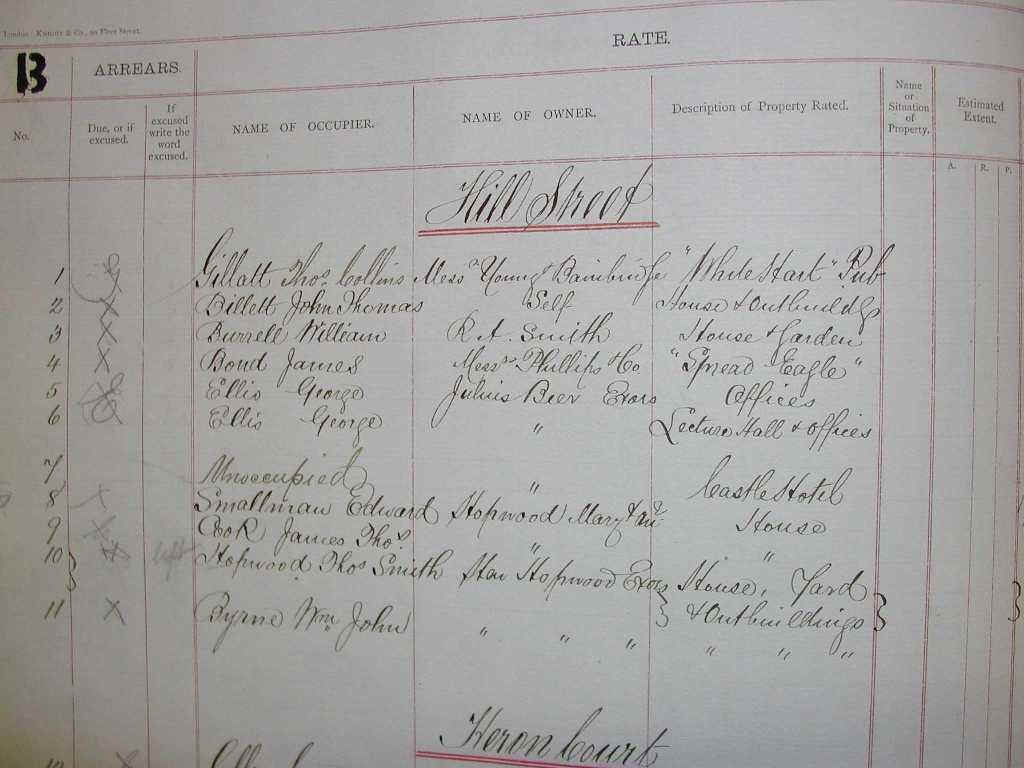 London: Knight & Co., 90 Fleet Street.
B
ARREARS.
RATE.
No.
Due, or if excused.
If excused write the word excused.
NAME OF OCCUPIER.
NAME OF OWNER.
Description of Property Rated.
Name or Situation of Property.
Estimated Extent.
A. R. P.
Hill Street
1 Gillatt Thos. Collins Messrs Young & Bainbridge "White Hart" Pub
2 Billett John Thomas Self House & Outbuildgs
3 Burrell William R. A. Smith House & Garden
4 Bond James Messrs Phillips & Co "Spread Eagle"
5 Ellis George Julius Beer Exors Offices
6 Ellis George " Lecture Hall & Offices
7 Unoccupied " Castle Hotel
8 Smallman Edward Hopwood Mary House
9 Cook James Thos " "
10 Hopwood Thos Smith Hopwood Exors House, Yard
& Outbuildings
11 Byrne Wm John " " " " " "
Heron Court